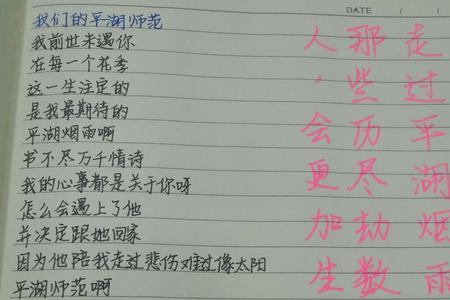 我们的平湖师范
我前世未遇你
在每一个花季
这一生注定的
是我最期待的
平湖烟雨啊
书不尽万千情诗
我的心事都是关于你呀
怎么会遇上了他
并决定跟她回家
因为他陪我走过悲伤难过像太阳
平湖师范啊
DATE / /
走过平湖烟雨
那些历尽劫数
人，会更加生